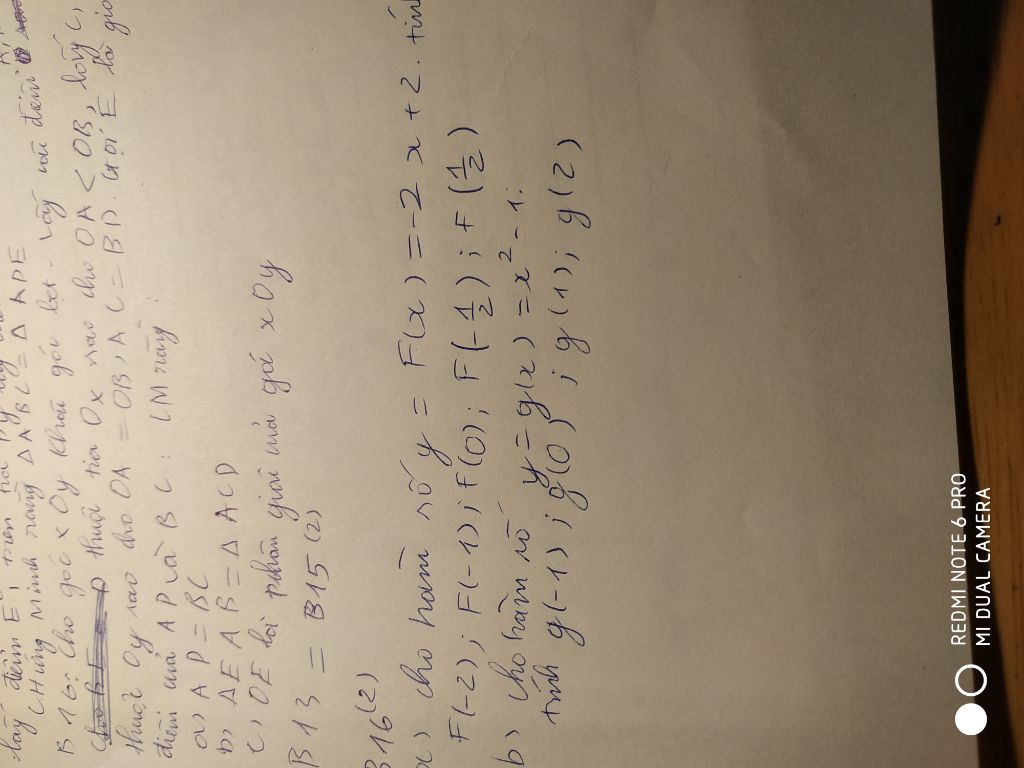 lấy điểm E, trên tia
Chứng minh rằng △ABC = △APE
B 16: Cho góc xOy khác góc bẹt. Lấy hai điểm
thuộc tia Ox sao cho OA < OB, lấy C,
thuộc Oy sao cho OA = OB, AC = BD. Gọi E là giao
điểm của AD và BC: CM rằng:
a, AP = BC
b, △EAB = △ACD
c, OE là phân giác của góc xOy
B13 = B15(2)
B16(2)
a) cho hàm số y = F(x) = -2x + 2. tính
F(-2); F(-1); F(0); F(-1/2); F(1/2)
b) cho hàm số y = g(x) = x² - 1.
tính g(-1); g(0); g(1); g(2)
REDMI NOTE 6 PRO
MI DUAL CAMERA